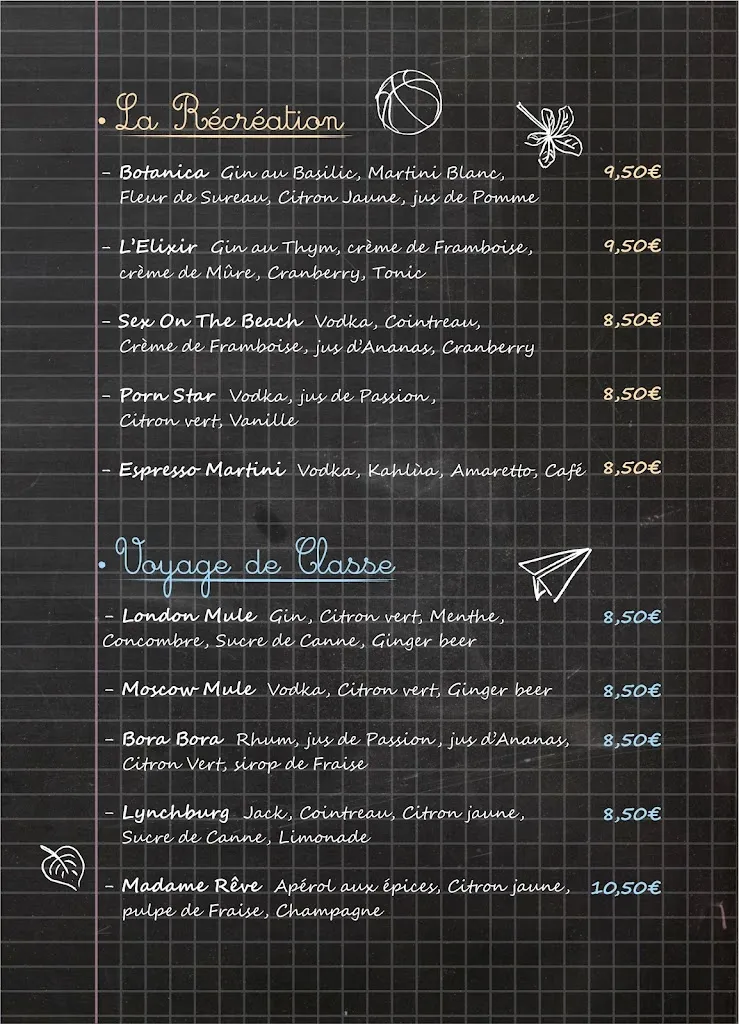 • La Récréation
- Botanica Gin au Basilic, Martini Blanc, 9,50€
Fleur de Sureau, Citron Jaune, jus de Pomme
- L'Elixir Gin au Thym, crème de Framboise, 9,50€
crème de Mûre, Cranberry, Tonic
- Sex On The Beach Vodka, Cointreau, 8,50€
Crème de Framboise, jus d'Ananas, Cranberry
- Porn Star Vodka, jus de Passion, 8,50€
Citron vert, Vanille
- Espresso Martini Vodka, Kahlùa, Amaretto, Café 8,50€
• Voyage de Classe
- London Mule Gin, Citron vert, Menthe, 8,50€
Concombre, Sucre de Canne, Ginger beer
- Moscow Mule Vodka, Citron vert, Ginger beer 8,50€
- Bora Bora Rhum, jus de Passion, jus d'Ananas, 8,50€
Citron Vert, sirop de Fraise
- Lynchburg Jack, Cointreau, Citron jaune, 8,50€
Sucre de Canne, Limonade
- Madame Rêve Apérol aux épices, Citron jaune, 10,50€
pulpe de Fraise, Champagne